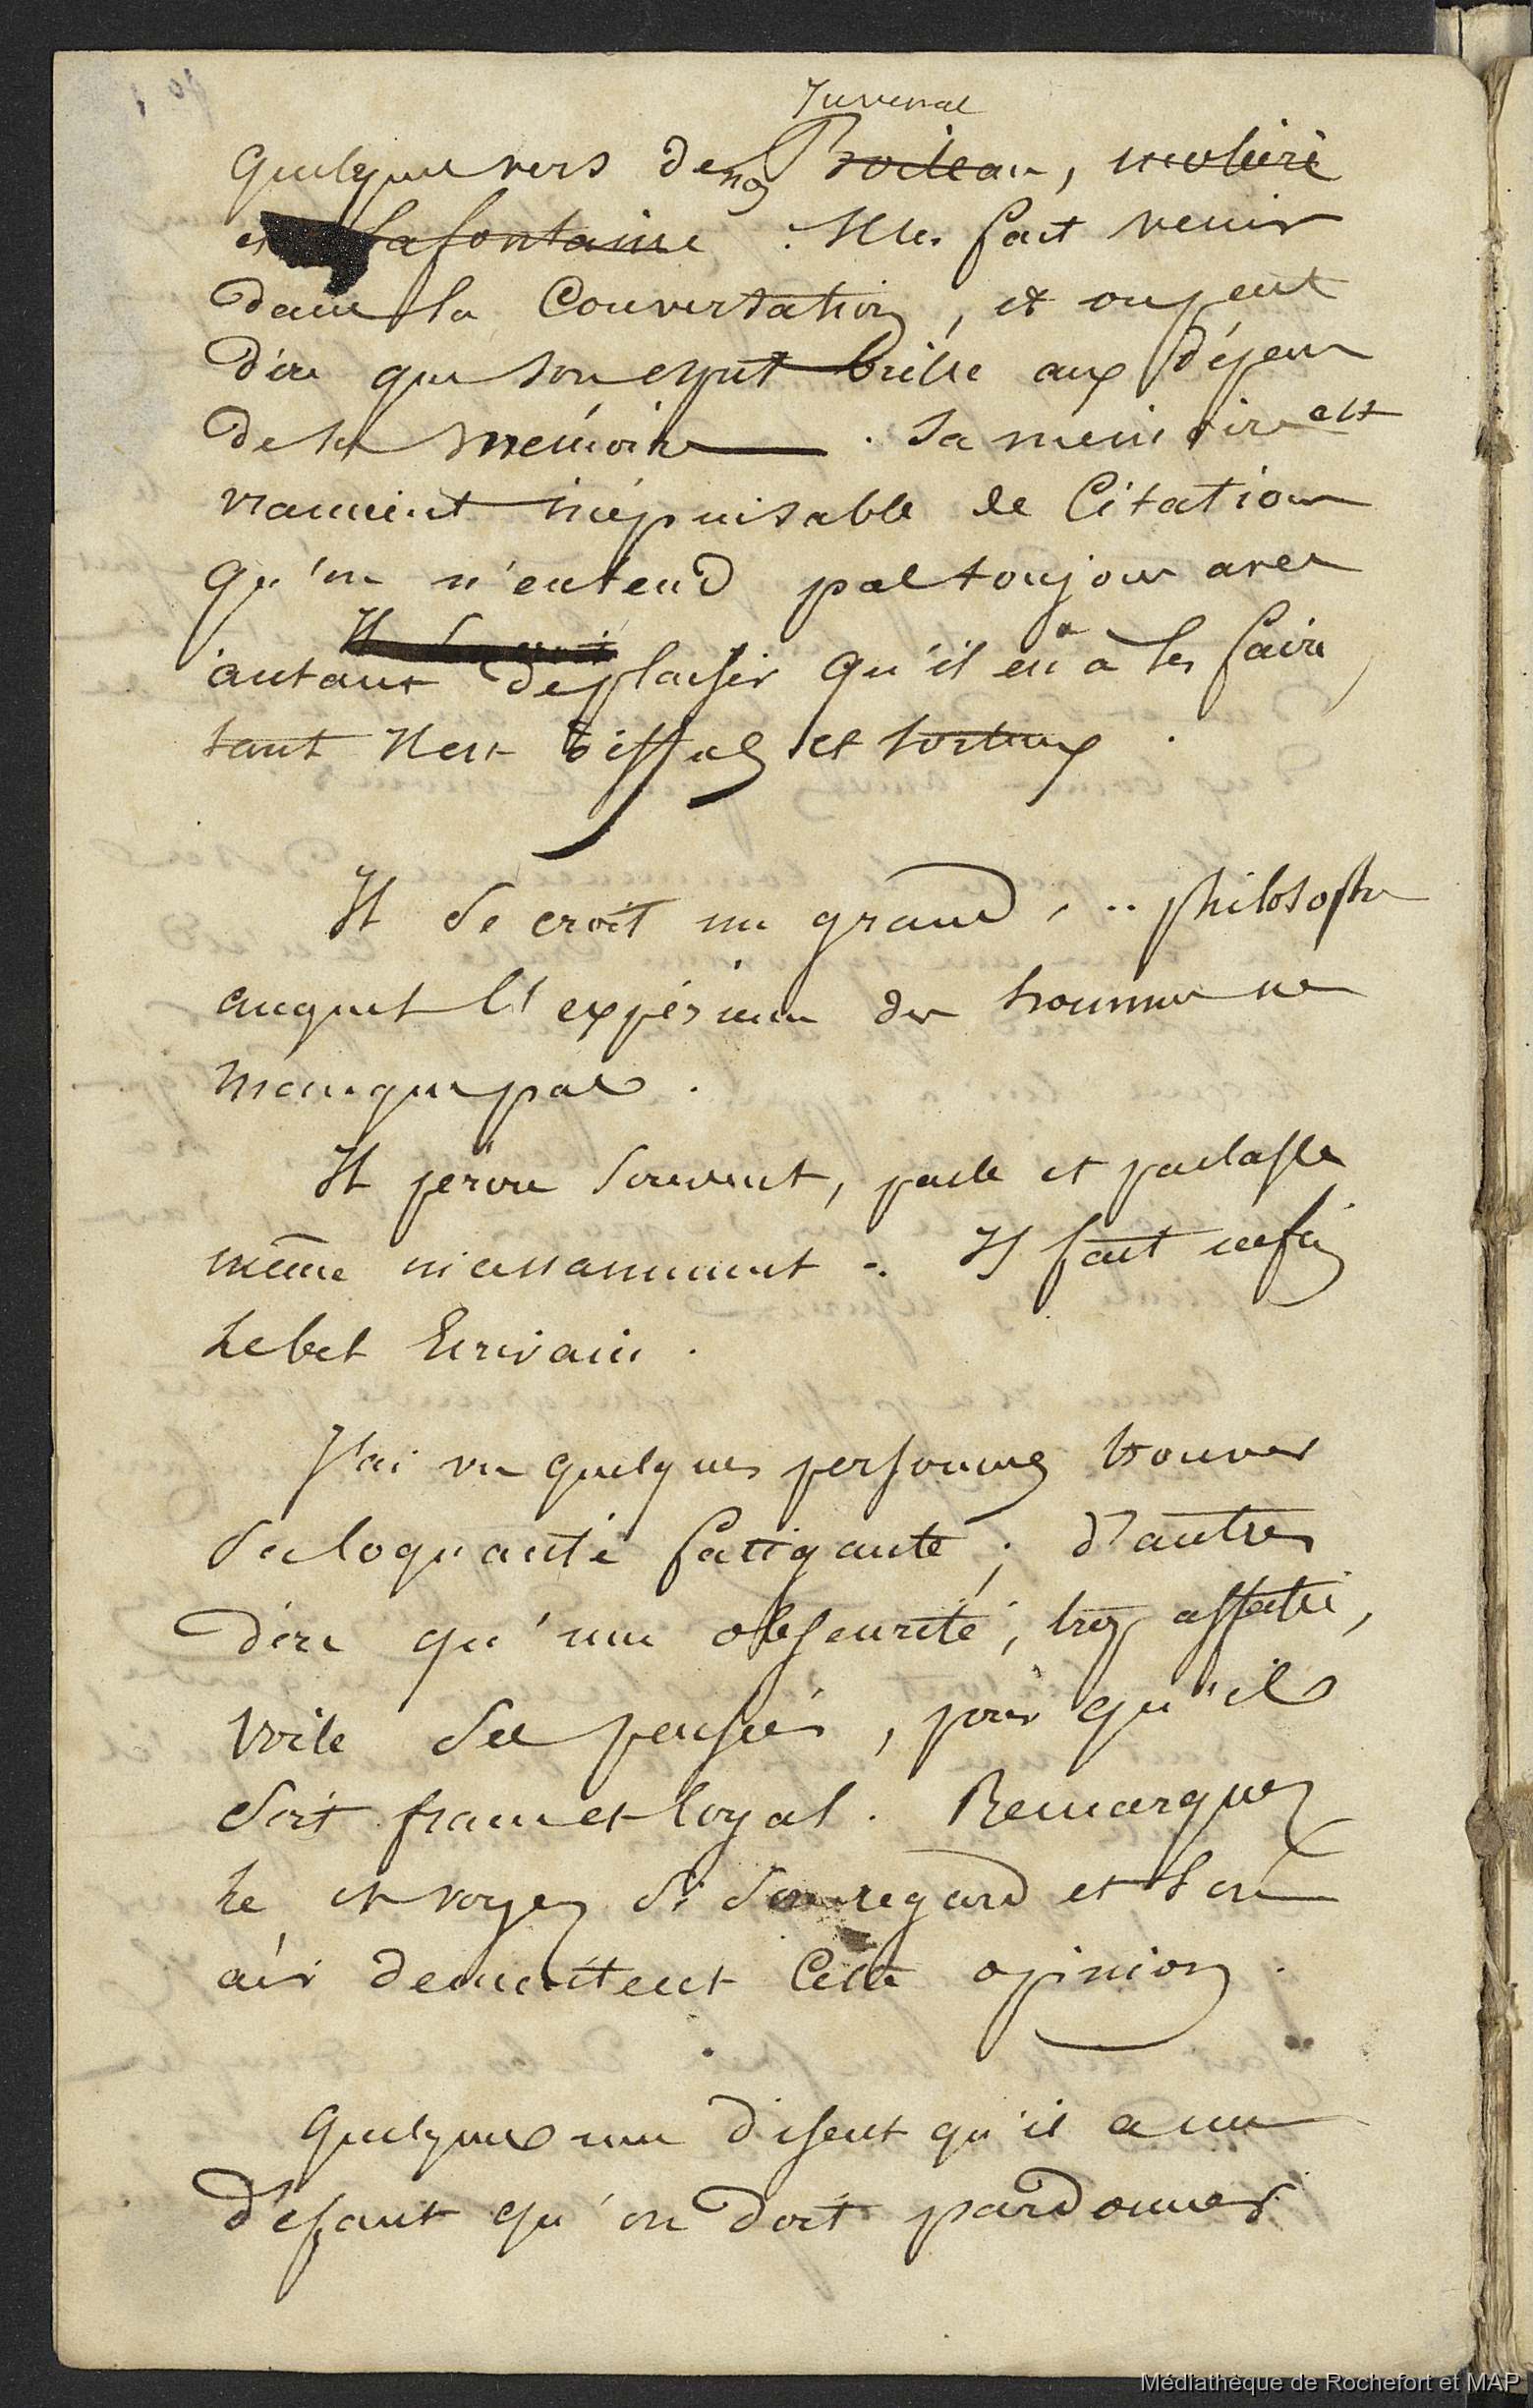 Juvenal
quelques vers de nos Boileau, moliere
et Lafontaine. Il les fait venir
dans la Conversation, et on peut
dire que son esprit brille aux dépens
de sa mémoire. Sa mémoire est
vraiment inépuisable de Citations
qu'on n'entend pas toujours avec
autant de plaisir qu'il en a à les faire,
tant Il est diffus et tortueux.
Il se croit un grand... philosophe
auquel l'expérience des hommes ne
manque pas.
Il pense souvent, parle et parlasse
même incessamment. Il fait enfin
le bel Ecrivain.
J'ai vu quelques personnes trouver
sa loquacité fatigante; d'autres
dire qu'une obscurité, trop affectée,
voile ses pensées, pour qu'il
soit franc et loyal. Remarquez
le et voyez si son regard et son
air démentent cette opinion.
Quelques uns disent qu'il a un
défaut qu'on doit pardonner
Médiathèque de Rochefort et MAP